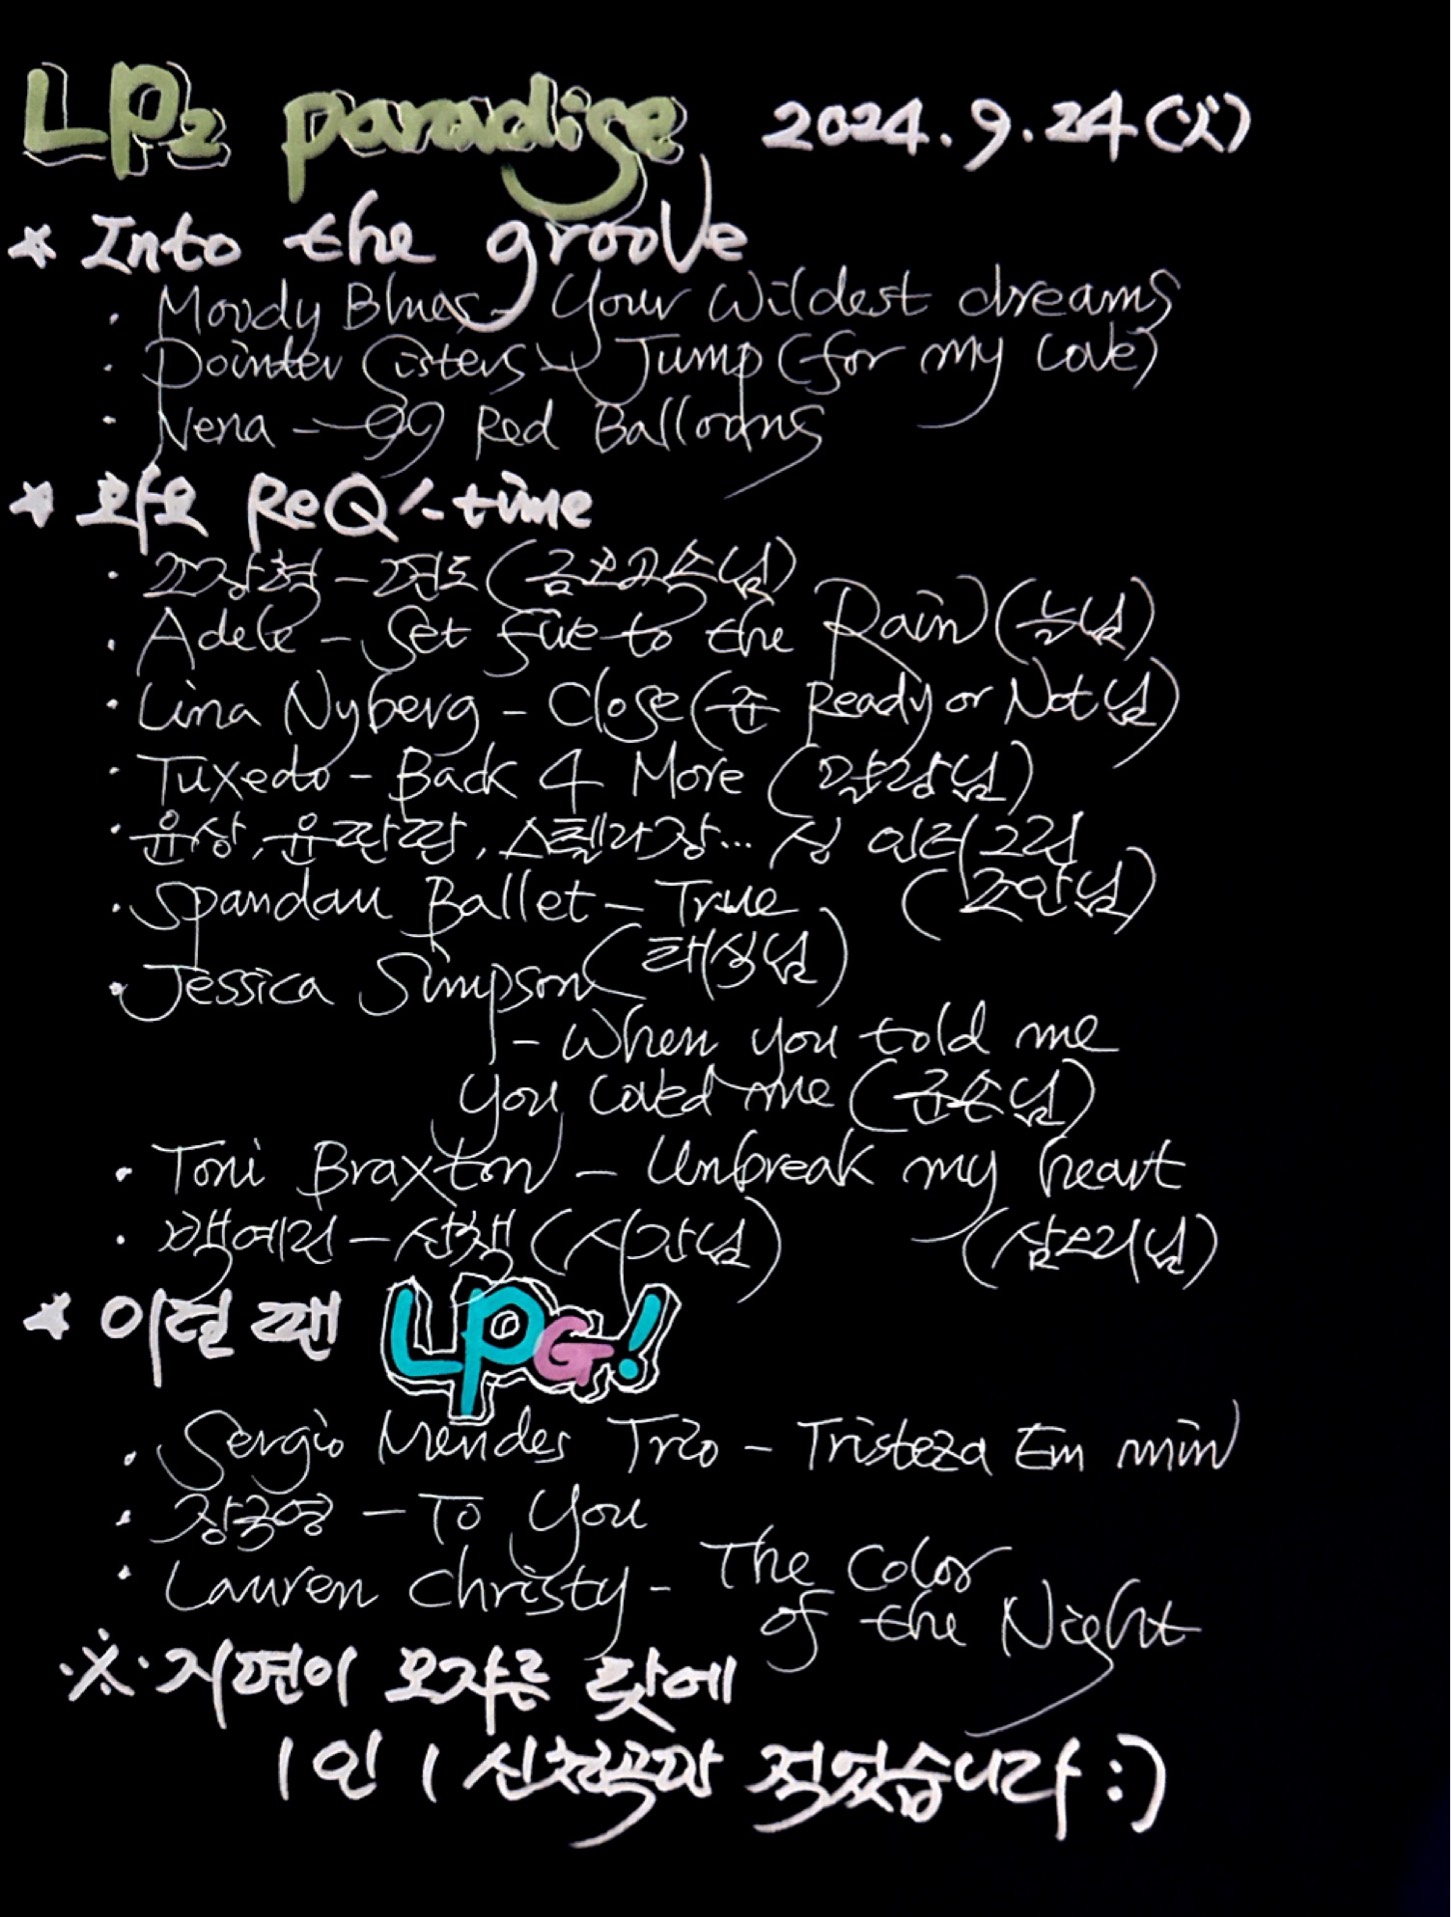 LP2 paradise 2024.9.24(火)
* Into the groove
· Moody Blues - Your Wildest dreams
· Pointer Sisters - Jump (for my love)
· Nena - 99 Red Balloons
* 화요 ReQ's-time
· 조장혁 - 중독 (금소고숙님)
· Adele - Set fire to the Rain (눈님)
· Lina Nyberg - Close (준 Ready or Not님)
· Tuxedo - Back 4 More (님)
· 윤상, 윤딴딴, 스텔라장... 싱 어러그런
· Spandau Ballet - True (조안님)
· Jessica Simpson (태싱님)
- When you told me
you loved me (금손님)
· Toni Braxton - Unbreak my heart
· 백예린 - 산책 (시간님) (삶으리님)
* 이럴 땐 LPG!
· Sergio Mendes Trio - Tristeza Em min
· 장국영 - To You
· Lauren Christy - The Color
of the Night
※ 지면이 모자른 탓에
1인 1 신청곡만 적었습니다 :)